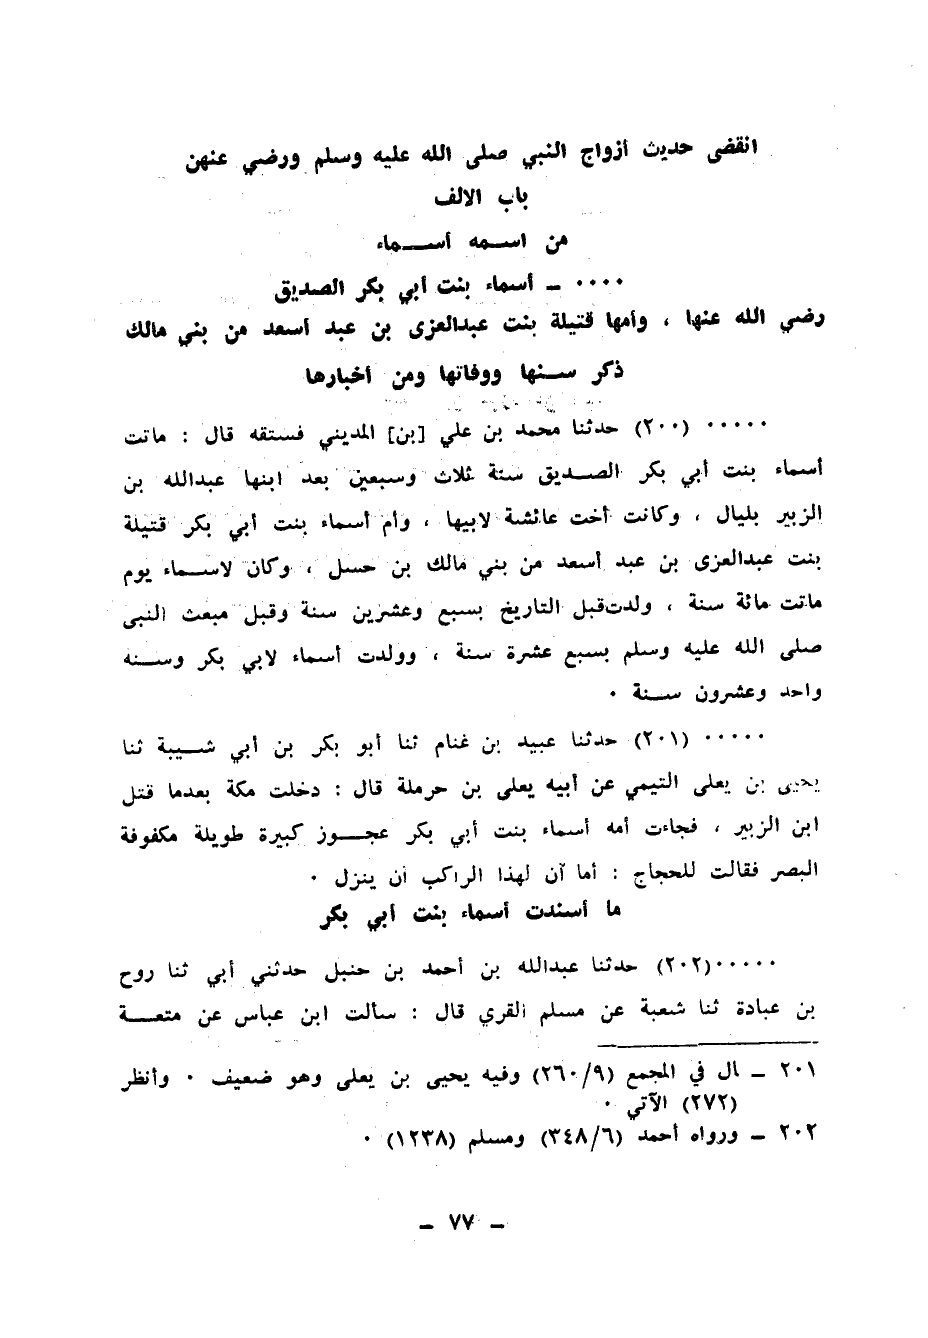 انقضى حديث أزواج النبي صلى الله عليه وسلم ورضي عنهن
باب الالف
من اسمه أسماء
٠٠٠٠ ــ أسماء بنت أبي بكر الصديق
رضي الله عنها ، وأمها قتيلة بنت عبدالعزى بن عبد أسعد من بني مالك
ذكر سنها ووفاتها ومن أخبارها
٠٠٠٠٠ (٢٠٠) حدثنا محمد بن علي [بن] المديني فستقه قال : ماتت
أسماء بنت أبي بكر الصديق سنة ثلاث وسبعين بعد ابنها عبدالله بن
الزبير بليال ، وكانت أخت عائشة لابيها ، وأم أسماء بنت أبي بكر قتيلة
بنت عبدالعزى بن عبد أسعد من بني مالك بن حسل ، وكان لاسماء يوم
ماتت مائة سنة ، ولدت قبل التاريخ بسبع وعشرين سنة وقبل مبعث النبى
صلى الله عليه وسلم بسبع عشرة سنة ، وولدت أسماء لابي بكر وسنه
واحد وعشرون سنة ٠
٠٠٠٠٠ (٢٠١) حدثنا عبيد بن غنام ثنا أبو بكر بن أبي شيبة ثنا
يحيى بن يعلى التيمي عن أبيه يعلى بن حرملة قال : دخلت مكة بعدما قتل
ابن الزبير ، فجاءت أمه أسماء بنت أبي بكر عجوز كبيرة طويلة مكفوفة
البصر فقالت للحجاج : أما آن لهذا الراكب أن ينزل ٠
ما أسندت أسماء بنت أبي بكر
٠٠٠٠٠(٢٠٢) حدثنا عبدالله بن أحمد بن حنبل حدثني أبي ثنا روح
بن عبادة ثنا شعبة عن مسلم القري قال : سألت ابن عباس عن متعة
٢٠١ ــ ال في المجمع (٢٦٠/٩) وفيه يحيى بن يعلى وهو ضعيف ٠ وأنظر
(٢٧٢) الآتي ٠
٢٠٢ ــ ورواه أحمد (٣٤٨/٦) ومسلم (١٢٣٨) ٠
ــ ٧٧ ــ